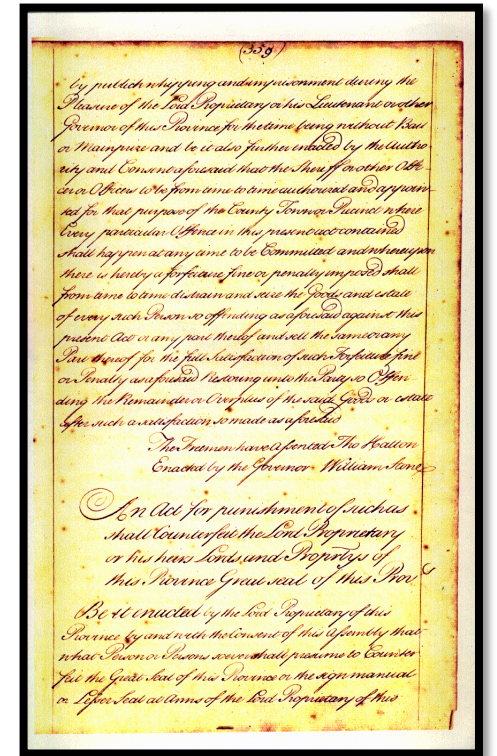 (359)
by publick whipping and imprisonment during the
Pleasure of the Lord Proprietary or his Lieutenant or other
Governor of this Province for the time being without Bail
or Mainprize and be it also further enacted by the Autho
rity and Consent aforesaid that the Sheriff or other Offi
cer or Officers to be from time to time authorized and appoin
ted for that purpose of the County Town or Precinct where
Every particular Offence in this present act contained
shall happen at any time to be Committed and whereupon
there is hereby a forfeiture fine or penalty imposed shall
from time to time distrain and seize the Goods and estate
of every such Person so offending as aforesaid against this
present Act or any part thereof and sell the same or any
Part thereof for the full Satisfaction of such Forfeiture fine
or Penalty as aforesaid Restoring unto the Party so Offen
ding the Remainder or Overplus of the said Goods or estate
after such a satisfaction so made as aforesaid
The Freemen have assented Tho Hatton
Enacted by the Governor William Stone
An Act for punishment of such as
shall Counterfeit the Lord Proprietary
or his heirs Lords and Proprtys of
this Province Great seal of this Prov
Be it enacted by the Lord Proprietary of this
Province by and with the Consent of this Assembly that
what Person or Persons soever shall presume to Counter
feit the Great Seal of this Province or the sign manual
or Lesser Seal at Arms of the Lord Proprietary of this